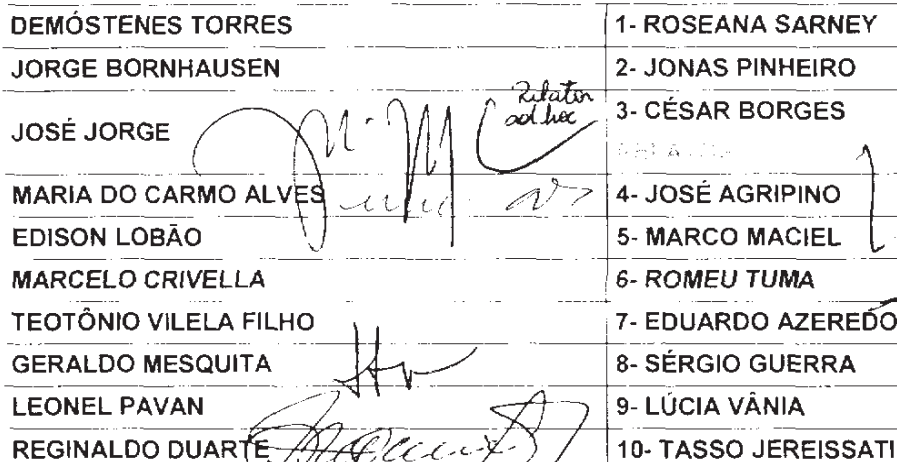 DEMÓSTENES TORRES 1- ROSEANA SARNEY
JORGE BORNHAUSEN 2- JONAS PINHEIRO
Relator
ad hoc
JOSÉ JORGE 3- CÉSAR BORGES
MARIA DO CARMO ALVES 4- JOSÉ AGRIPINO
EDISON LOBÃO 5- MARCO MACIEL
MARCELO CRIVELLA 6- ROMEU TUMA
TEOTÔNIO VILELA FILHO 7- EDUARDO AZEREDO
GERALDO MESQUITA 8- SÉRGIO GUERRA
LEONEL PAVAN 9- LÚCIA VÂNIA
REGINALDO DUARTE 10- TASSO JEREISSATI